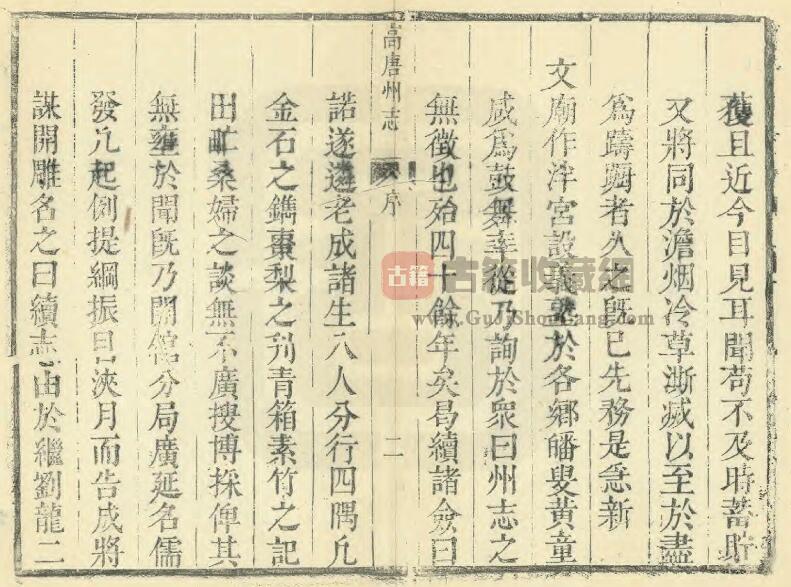 獲且近今目見耳聞苟不及時蓄貯
又將同於澹烟冷草澌滅以至於盡
爲躊躕者久之旣已先務是急新
文廟作泮宮設義塾於各鄉皤叟黃童
咸爲鼓舞幸從乃詢於衆曰州志之
無徵也殆四十餘年矣曷續諸僉曰
高唐州志
序
二
諾遂遴老成諸生八人分行四隅凡
金石之鐫棗梨之刋青箱素竹之記
田畆桑婦之談無不廣搜博採俾其
無壅於聞旣乃開舘分局廣延名儒
發凡起例提綱振目浹月而告成將
謀開雕名之曰續志由於繼劉龍二
古籍
古籍收藏組
www.GuJiShouCang.com